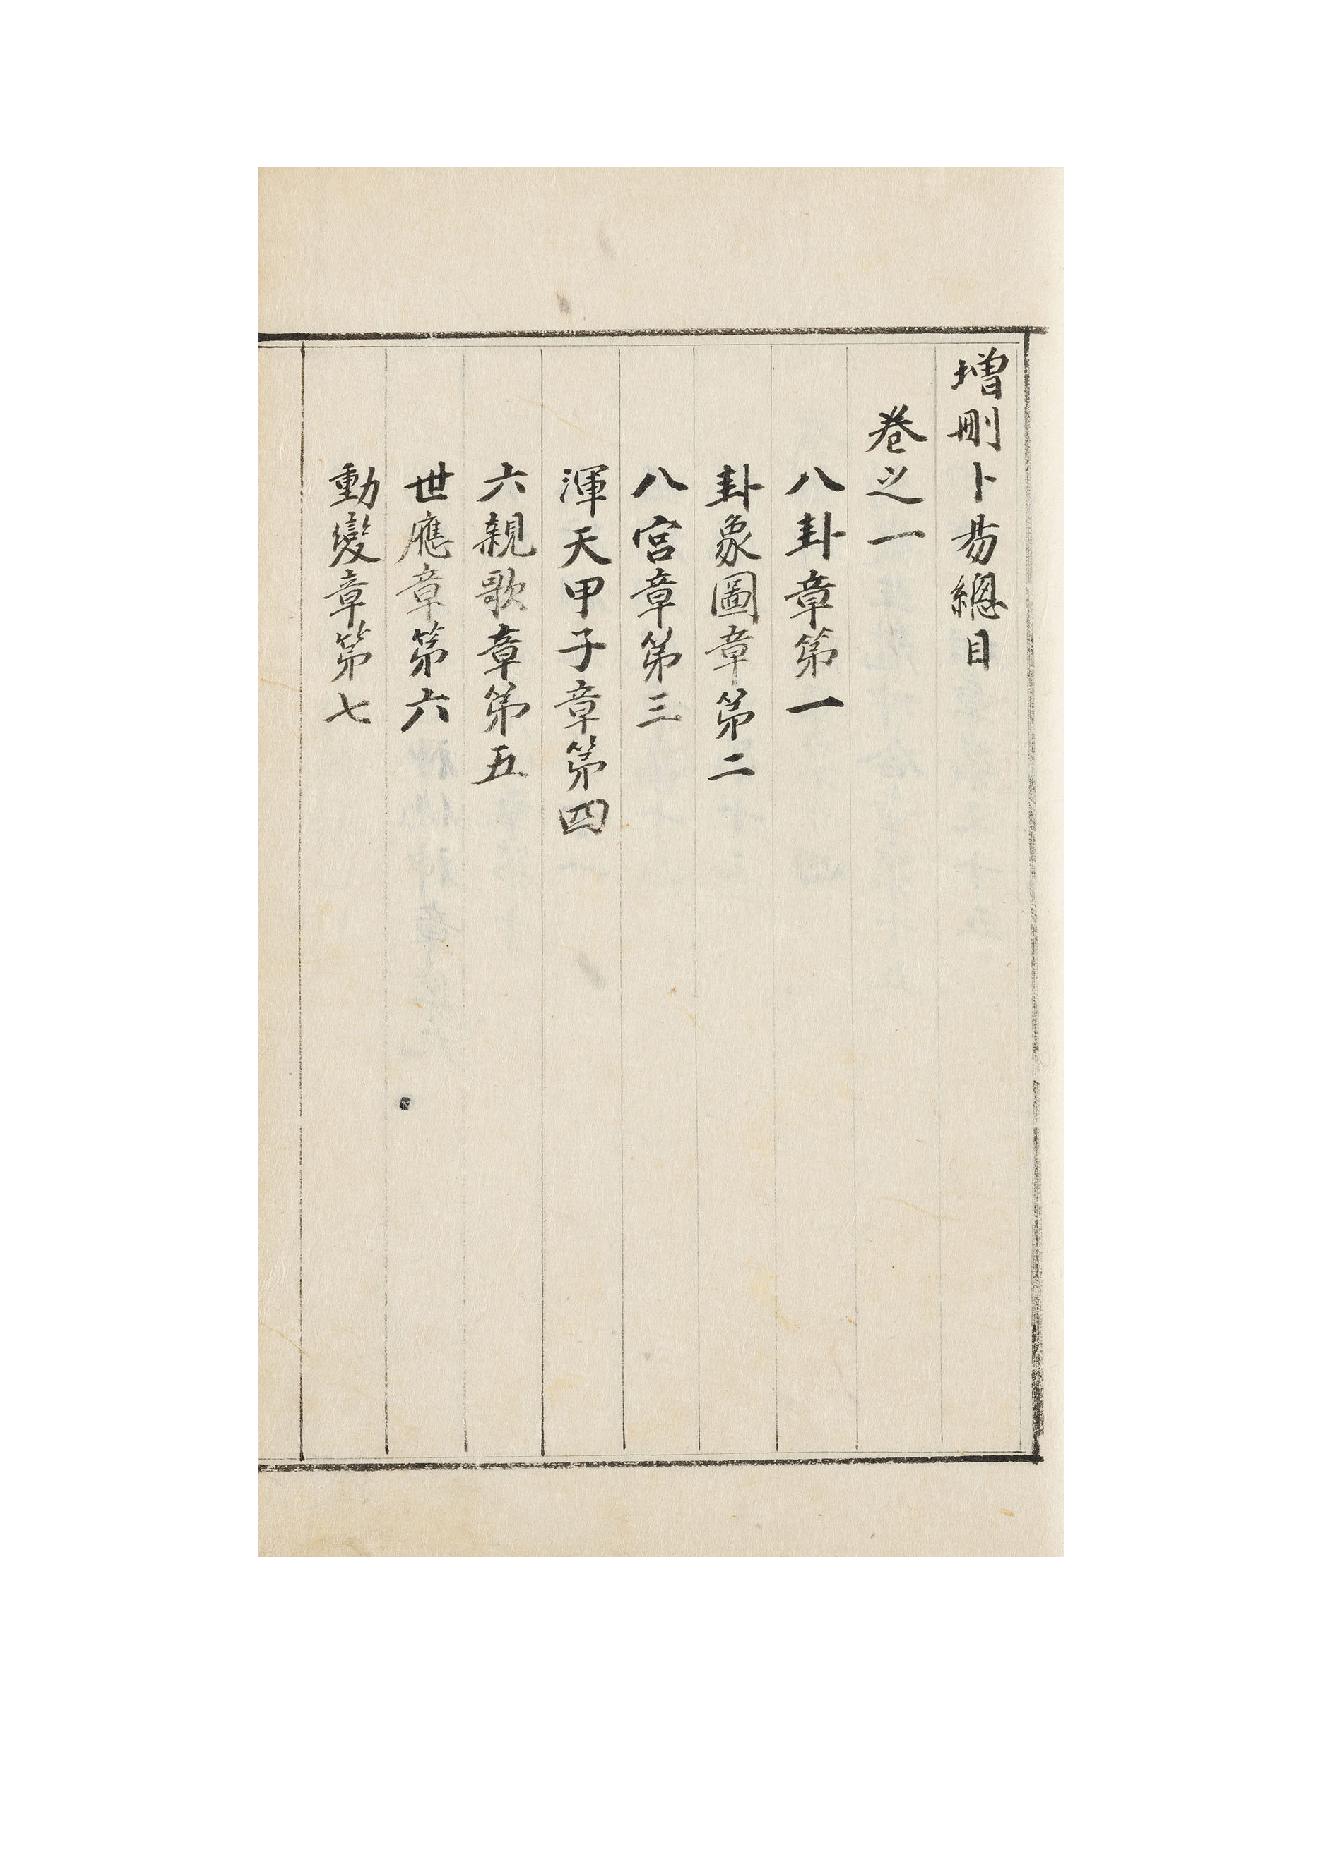 增刪卜易總目
卷之一
八卦章第一
卦象圖章第二
八宮章第三
渾天甲子章第四
六親歌章第五
世應章第六
動變章第七